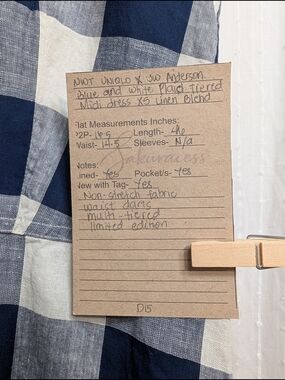 NWT UNIQLO X JW Anderson
Blue and white Plaid Tiered
Midi dress XS Linen Blend
lat Measurements Inches:
2P- 16.5 Length- 46
Waist- 14.5 Sleeves- N/A
Sakuracess
Notes:
ined- Yes Pocket/s- Yes
New with Tag- Yes
Non-stretch fabric
waist darts
multi-tiered
limited edition
D15